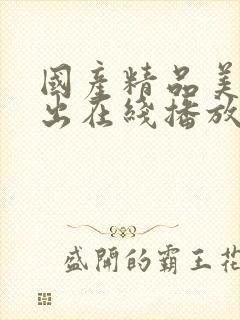 國産精品美
出在綫播放
盛開的霸王花